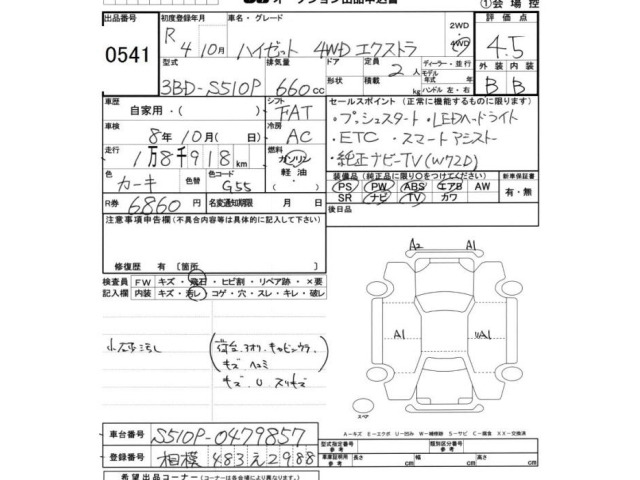 オークション出品申込書 ①会場控
出品番号 初度登録年月 車名・グレード 2WD 4WD 評価点
0541 R 4年10月 ハイゼット 4WD エクストラ 4.5
型式 排気量 ドア 定員 ディーラー・並行 外装 内装
3BD-S510P 660cc 形状 積載 2人 kg モデル年式 年 ハンドル 左・右 B B
車歴 自家用・( ) シフト FAT セールスポイント(正常に機能するものに限ります)
車検 8年10月( 日) 冷房 AC ・プッシュスタート・LEDヘッドライト
走行 1万8千918km 燃料 ガソリン 軽油 ・ETC・スマートアシスト
・純正ナビーTV(W72D)
色 カーキ 色替 色コード G55 装備品(純正品に限り○をつけてください) 新車保証書
PS PW ABS エアB AW 有・無
R券 6860円 名変通知期限 月 日 SR ナビ TV カワ
注意事項申告欄(不具合内容等は具体的に記入して下さい) 後日品
修復歴 有〔箇所 〕
検査員 FW キズ・飛石・ヒビ割・リペア跡・×要
記入欄 内装 キズ・汚レ・コゲ・穴・スレ・キレ・破レ
A2 A1
A1 A1
スペア
キズ ヘコミ
キズ U スリキズ
A-キズ E-エクボ U-凹み W-補修跡 S-サビ C-腐食 XX-交換済
車台番号 S510P-0479857 型式指定番号 参考 類別区分番号 参考
登録番号 相模 483え2988 車庫証明用 参考 長さ cm 幅 cm 高さ cm
希望出品コーナー